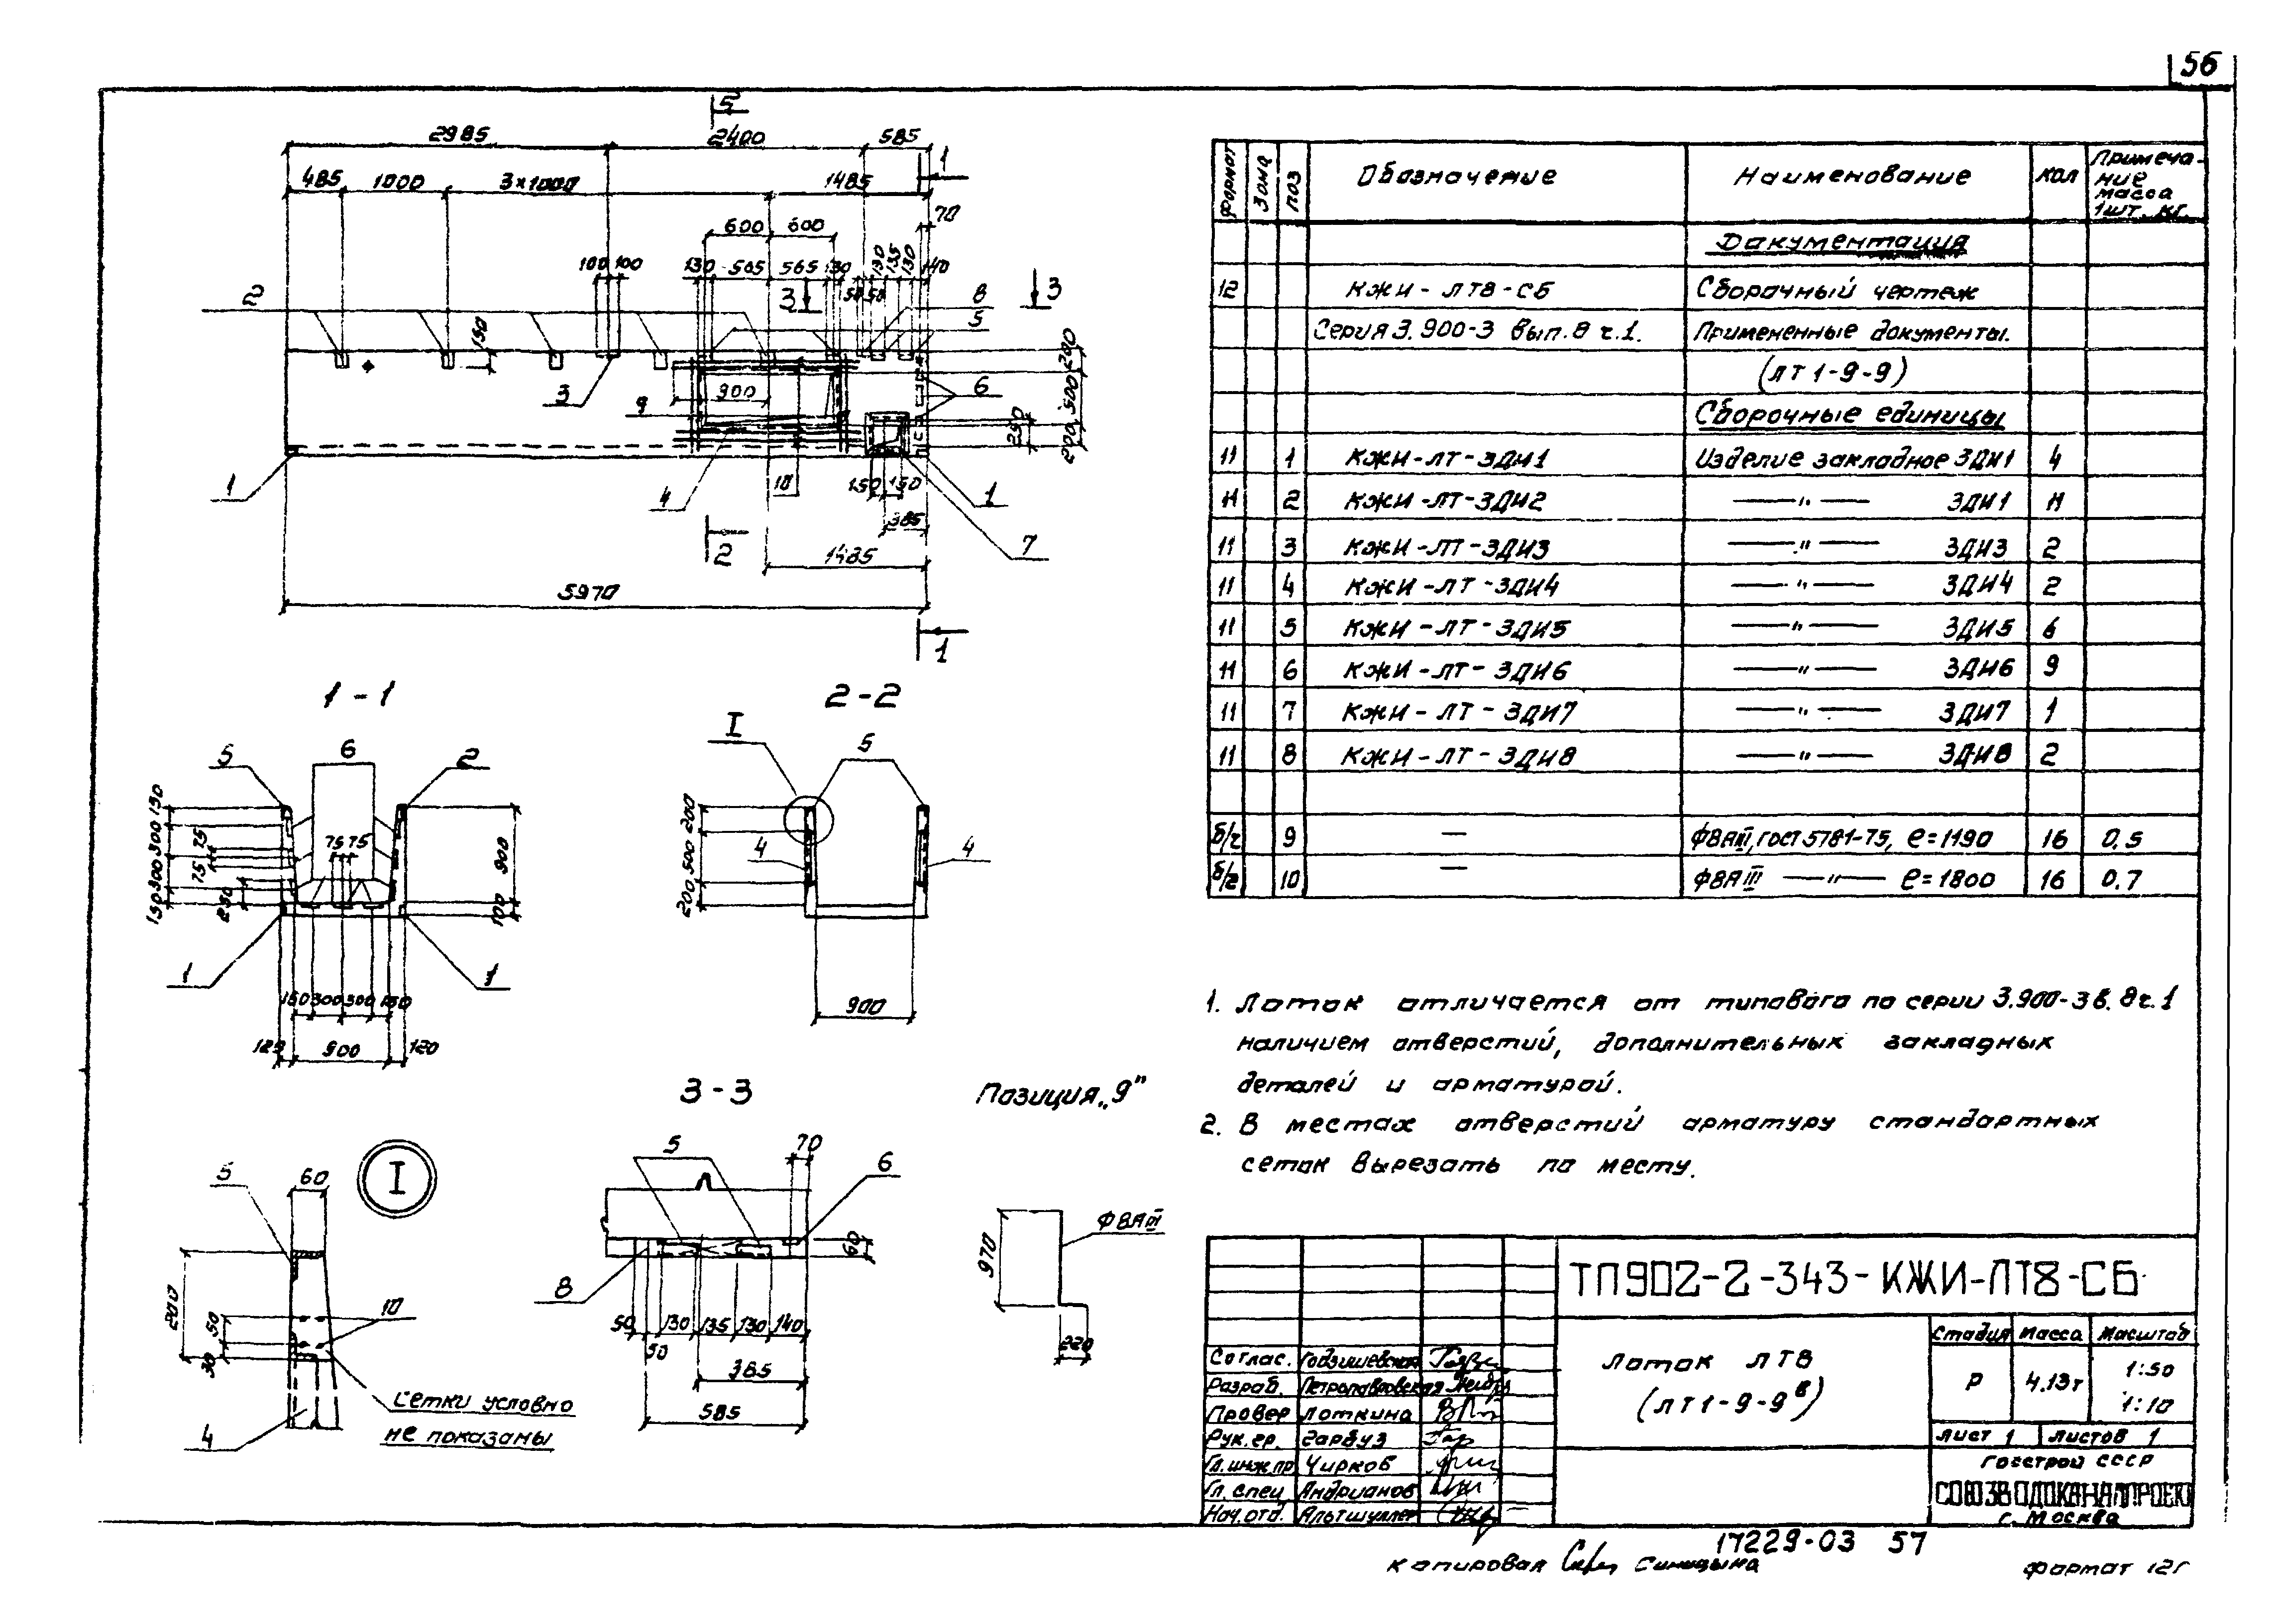 56
5
2985
2400
585
1
485
1000
3×1000
1485
70
600
600
100
100
130
565
565
130
130
135
130
140
50
50
2
3
8
3
5
150
200
500
200
3
9
900
6
250
1
4
10
150
150
1
385
7
2
1485
5970
1
1-1
5
6
2
130
300
300
150
75
75
75
75
230
900
100
1
1
150
300
300
150
900
120
2-2
I
5
200
500
200
4
4
900
3-3
5
70
6
60
8
50
130
135
130
140
50
385
585
Позиция „9"
970
Ф8АIII
220
I
5
60
200
50
30
10
4
Сетки условно
не показаны
Формат
Зона
Поз
Обозначение
Наименование
Кол
Примеча-
ние
масса
1шт. кг.
Документация
12 КЖИ-ЛТ8-СБ Сборочный чертеж
Серия 3.900-3 Вып.8 ч.1. Примененные документы.
(ЛТ1-9-9)
Сборочные единицы
11 1 КЖИ-ЛТ-ЗДИ1 Изделие закладное ЗДИ1 4
11 2 КЖИ-ЛТ-ЗДИ2 —"— ЗДИ1 11
11 3 КЖИ-ЛТ-ЗДИ3 —"— ЗДИ3 2
11 4 КЖИ-ЛТ-ЗДИ4 —"— ЗДИ4 2
11 5 КЖИ-ЛТ-ЗДИ5 —"— ЗДИ5 6
11 6 КЖИ-ЛТ-ЗДИ6 —"— ЗДИ6 9
11 7 КЖИ-ЛТ-ЗДИ7 —"— ЗДИ7 1
11 8 КЖИ-ЛТ-ЗДИ8 —"— ЗДИ8 2
б/ч 9 — Ф8АIII, ГОСТ 5781-75, ℓ=1190 16 0.5
б/ч 10 — Ф8АIII —"— ℓ=1800 16 0.7
1. Лоток отличается от типового по серии 3.900-3 в. 8 ч.1
наличием отверстий, дополнительных закладных
деталей и арматурой.
2. В местах отверстий арматуру стандартных
сеток вырезать по месту.
ТП902-2-343-КЖИ-ЛТ8-СБ
Лоток ЛТ8
(ЛТ1-9-9в)
Стадия Масса Масштаб
Р 4.13т 1:50
1:10
Лист 1 Листов 1
Госстрой СССР
СОЮЗВОДОКАНАЛПРОЕКТ
г. Москва
Соглас.
Разраб. Петропавловская
Провер Лоткина
Рук.гр. Гарбуз
Гл.инж.пр Чирков
Гл.спец Андрианов
Нач.отд. Альтшуллер
17229-03 57
Копировал Синицына
Формат 12г